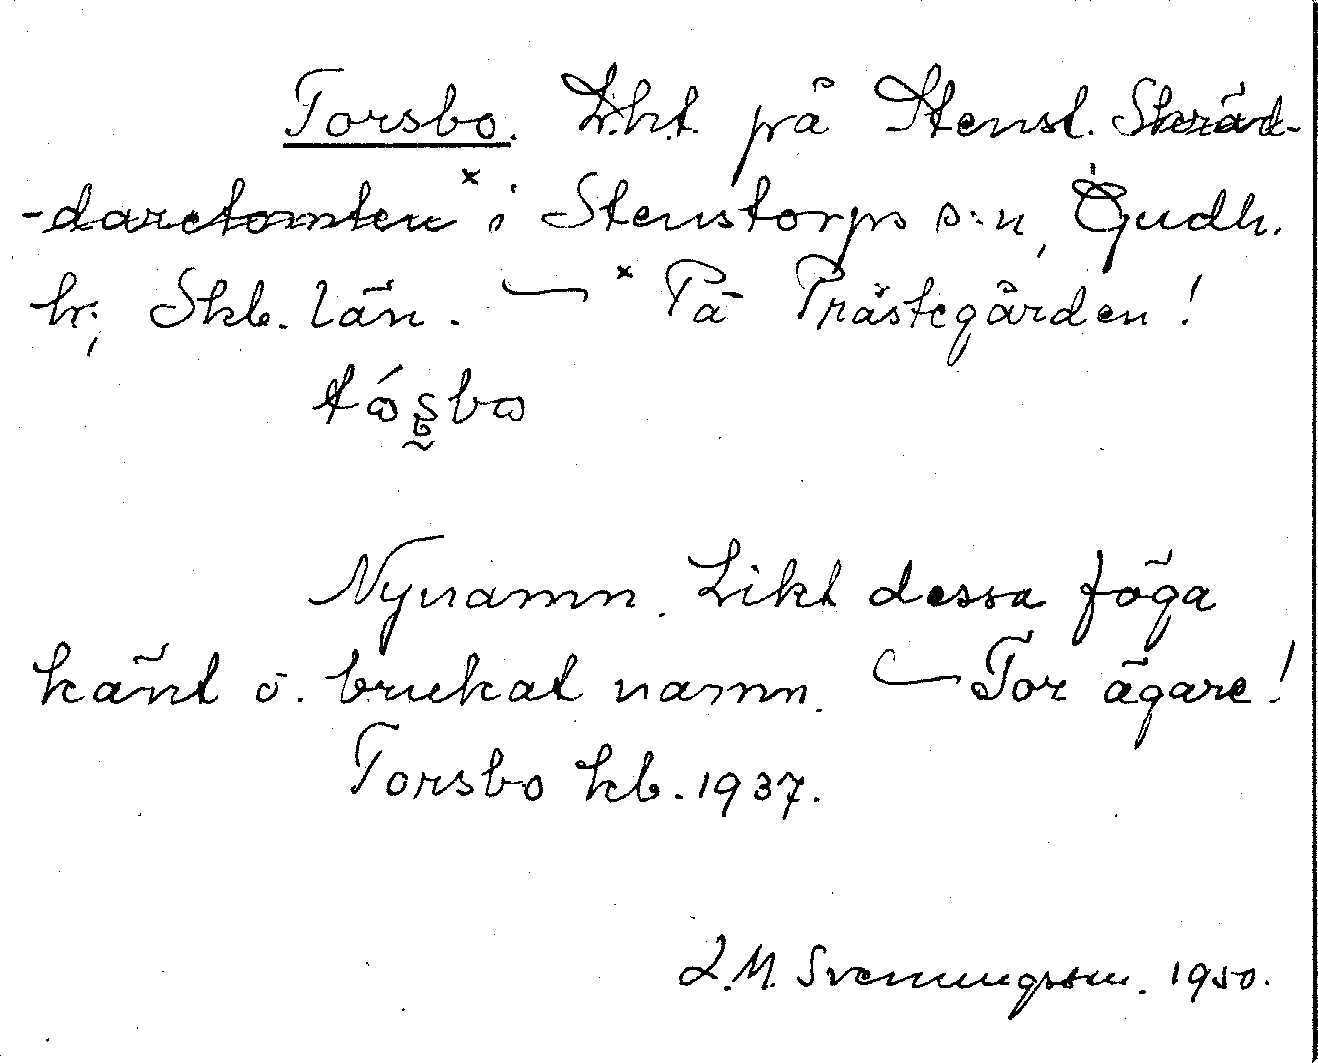 Torsbo. Lht. på Stenst. Skräd-
-daretomten × i Stenstorps s:n, Gudh.
hr; Skb. län. — × På Prästegården!
Nynamn. Likt dessa föga
känt o. brukat namn. — Tor ägare!
Torsbo kb. 1937.
L.M. Svenungsson. 1950.